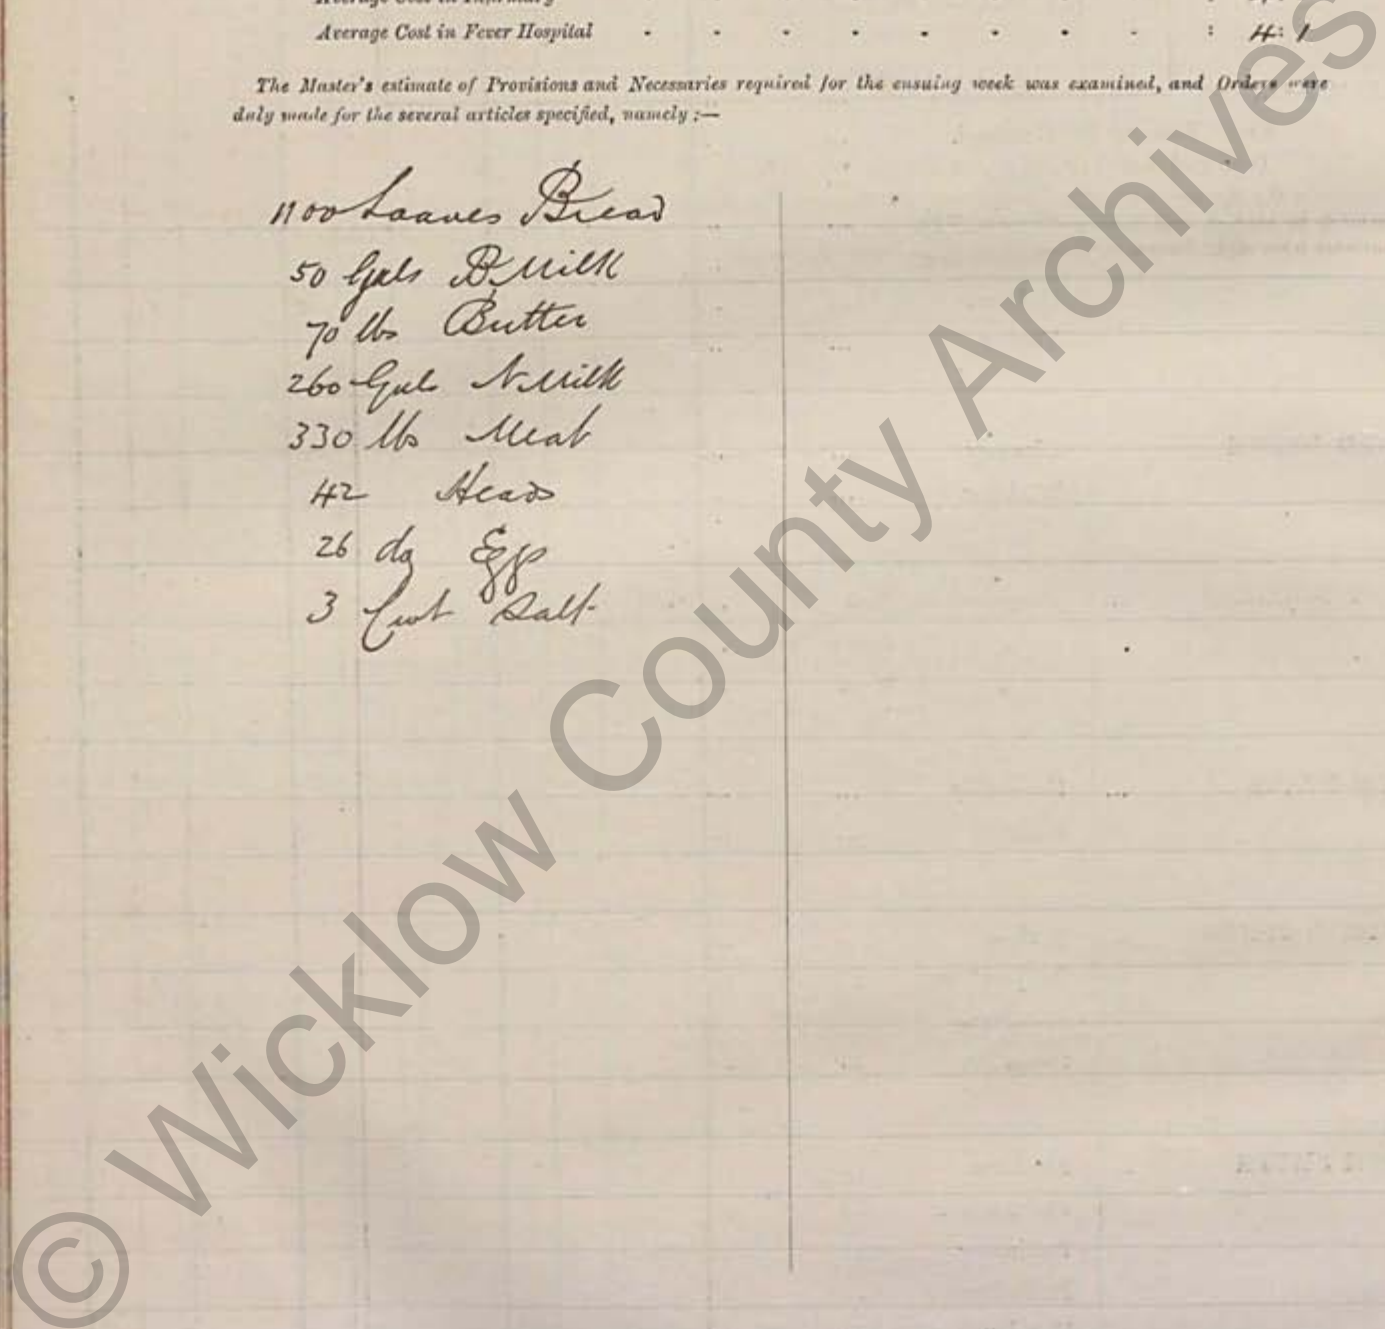 Average Cost in Infirmary
Average Cost in Fever Hospital - - - - - - - - : 4: 1
The Master's estimate of Provisions and Necessaries required for the ensuing week was examined, and Orders were
duly made for the several articles specified, namely :—
1100 Loaves Bread
50 Gals B Milk
70 lbs Butter
260 Gals N Milk
330 lbs Meat
42 Heads
26 dz Eggs
3 Cwt Salt
© Wicklow County Archives